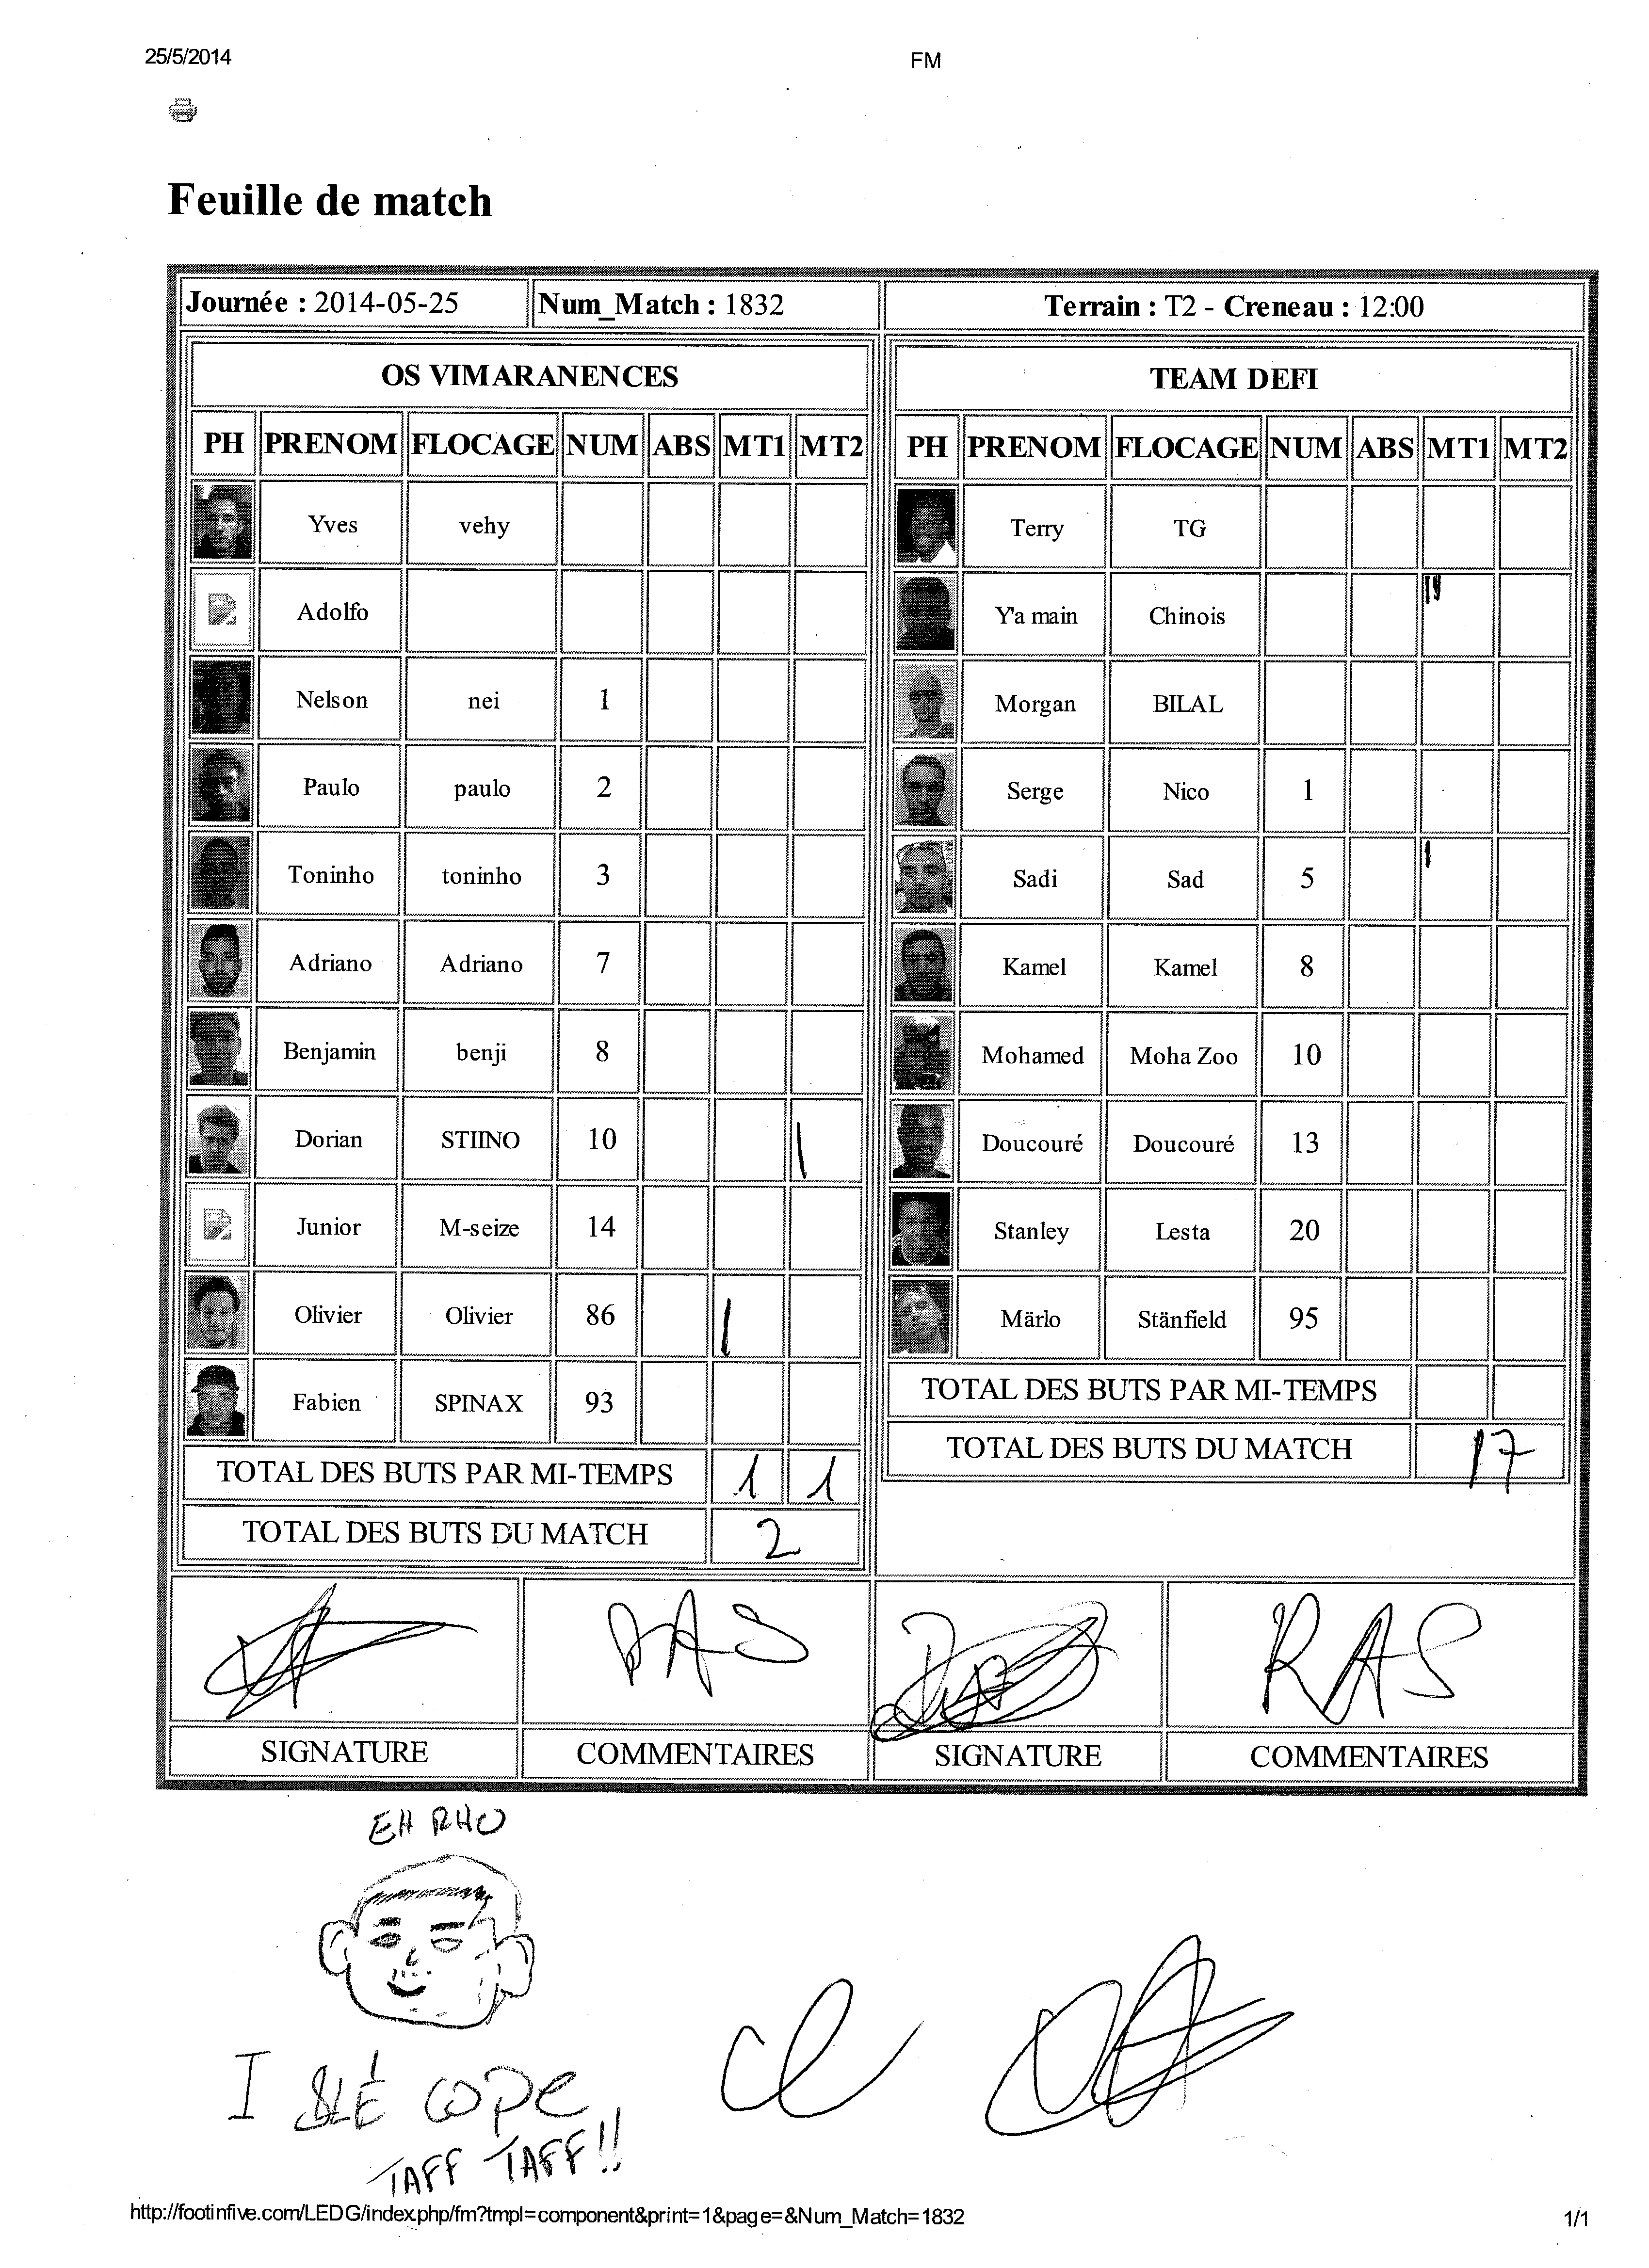 25/5/2014 FM
Feuille de match
Journée : 2014-05-25 Num_Match : 1832 Terrain : T2 - Creneau : 12:00
OS VIMARANENCES
PH PRENOM FLOCAGE NUM ABS MT1 MT2
Yves vehy
Adolfo
Nelson nei 1
Paulo paulo 2
Toninho toninho 3
Adriano Adriano 7
Benjamin benji 8
Dorian STIINO 10 |
Junior M-seize 14
Olivier Olivier 86 |
Fabien SPINAX 93
TOTAL DES BUTS PAR MI-TEMPS 1 1
TOTAL DES BUTS DU MATCH 2
TEAM DEFI
PH PRENOM FLOCAGE NUM ABS MT1 MT2
Terry TG
Y'a main Chinois
Morgan BILAL
Serge Nico 1
Sadi Sad 5 |
Kamel Kamel 8
Mohamed Moha Zoo 10
Doucouré Doucouré 13
Stanley Lesta 20
Märlo Stänfield 95
TOTAL DES BUTS PAR MI-TEMPS
TOTAL DES BUTS DU MATCH 17
RAS RAS
SIGNATURE COMMENTAIRES SIGNATURE COMMENTAIRES
EH RHO
I BLÉ COPE
TAFF TAFF!!
http://footinfive.com/LEDG/index.php/fm?tmpl=component&print=1&page=&Num_Match=1832 1/1